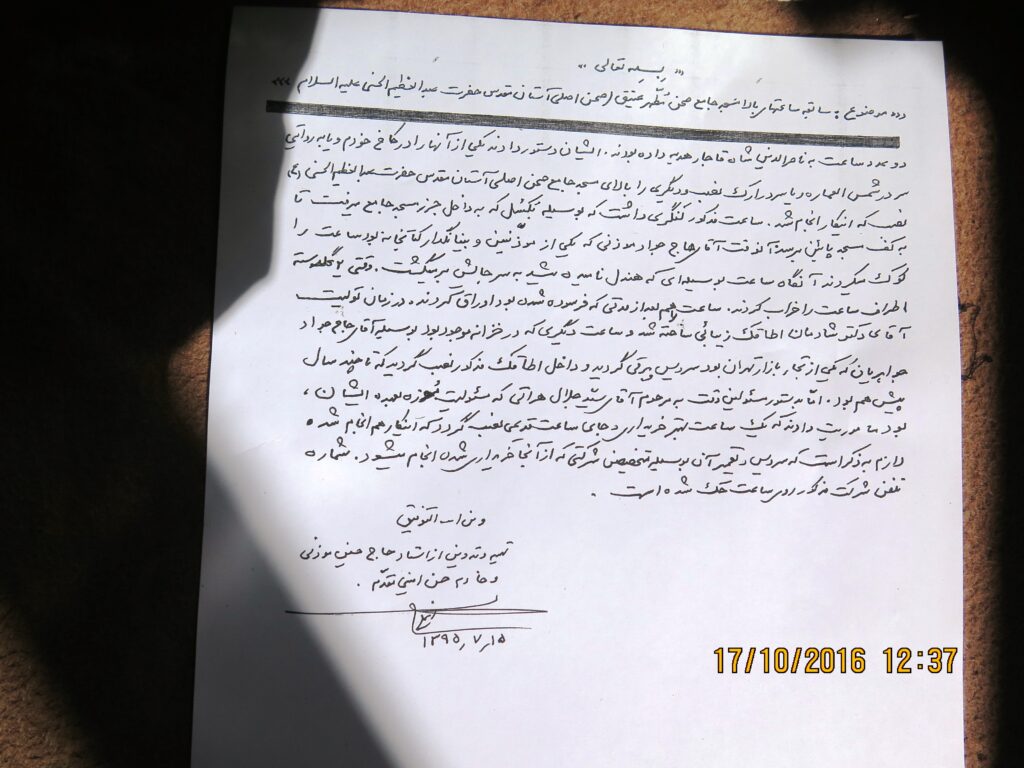 «« بسمه تعالی »»
««« موضوع : سابقه ساعتهای بالای مسجد جامع صحن مطهر عتیق (صحن اصلی آستان مقدس حضرت عبدالعظیم الحسنی علیه السلام »»»
دو عدد ساعت به ناصرالدین شاه قاجار هدیه داده بودند . ایشان دستور دادند یکی از آنها را در کاخ خودم و یا به روایتی
سر در شمس العماره و یا سر در ارک نصب و دیگری را بالای مسجد جامع صحن اصلی آستان مقدس حضرت عبدالعظیم الحسنی (ع)
نصب که اینکار انجام شد . ساعت مذکور لنگری داشت که بوسیله بکسل که به داخل جرز مسجد جامع میرفت تا
به کف مسجد پائین میرسد آنوقت آقای حاج جواد موذنی که یکی از موذنین و بنیانگذار کتابخانه بود ساعت را
کوک میکردند آنگاه ساعت بوسیله‌ای که هندل نامیده میشد به سر جایش برمیگشت . وقتی ۲ گلدسته
اطراف ساعت را خراب کردند . ساعت هم بعد از مدتی که فرسوده شده بود اوراق کردند . در زمان تولیت
آقای دکتر شادمان اطاقک زیبائی ساخته شد و ساعت دیگری که در خزانه موجود بود بوسیله آقای حاج جواد
جواهریان که یکی از تجار بازار تهران بود سرویس و برقی گردید و داخل اطاقک مذکور نصب گردید که تا چند سال
پیش هم بود . امّا به دستور مسئولین وقت به مرحوم آقای سید جلال هراتی که مسئولیت موزه بعهده ایشان ،
بود ماموریت دادند که یک ساعت بهتر خریداری و بجای ساعت قدیمی نصب گردد که اینکار هم انجام شده
لازم به ذکر است که سرویس و تعمیر آن بوسیله متخصص شرکتی که از آنجا خریداری شده انجام میشود . شماره
تلفن شرکت مذکور روی ساعت حک شده است .
و من الله التوفیق
تهیه و تدوین از استاد حاج حسین موذنی
و خادم حسن امینی مقدّم .
۱۳۹۵٫۷٫۱۵
17/10/2016 12:37